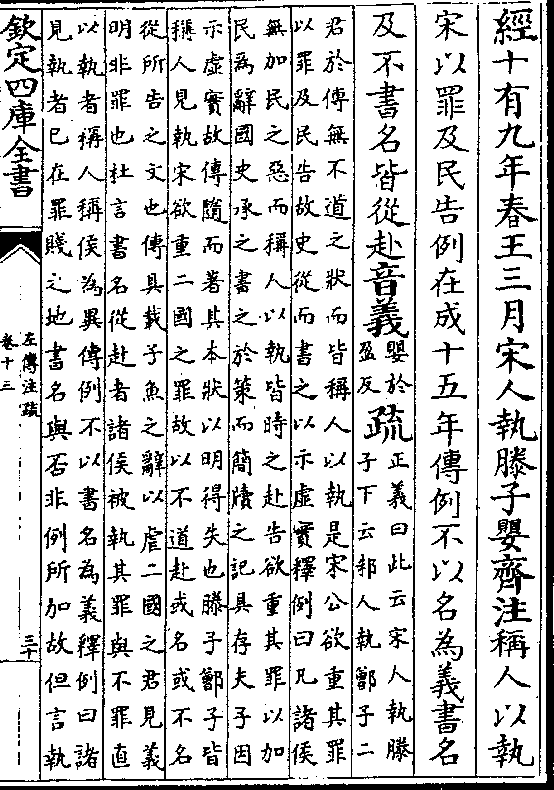 經十有九年春王三月宋人執滕子嬰齊注稱人以執
宋以罪及民告例在成十五年傳例不以名為義書名
及不書名皆從赴音義嬰於
盈反疏正義曰此云宋人執滕
子下云邾人執鄫子二
君於傳無不道之狀而皆稱人以執是宋公欲重其罪
以罪及民告故史從而書之以示虛實釋例曰凡諸侯
無加民之惡而稱人以執皆時之赴告欲重其罪以加
民為辭國史承之書之於策而簡牘之記具存夫子因
示虛實故傳隨而著其本狀以明得失也滕子鄫子皆
稱人見執宋欲重二國之罪故以不道赴或名或不名
從所告之文也傳具載子魚之辭以虐二國之君見義
明非罪也杜言書名從赴者諸侯被執其罪與不罪直
以執者稱人稱侯為異傳例不以書名為義釋例曰諸
見執者已在罪賤之地書名與否非例所加故但言執
欽定四庫全書
左傳注疏
卷十三
三十